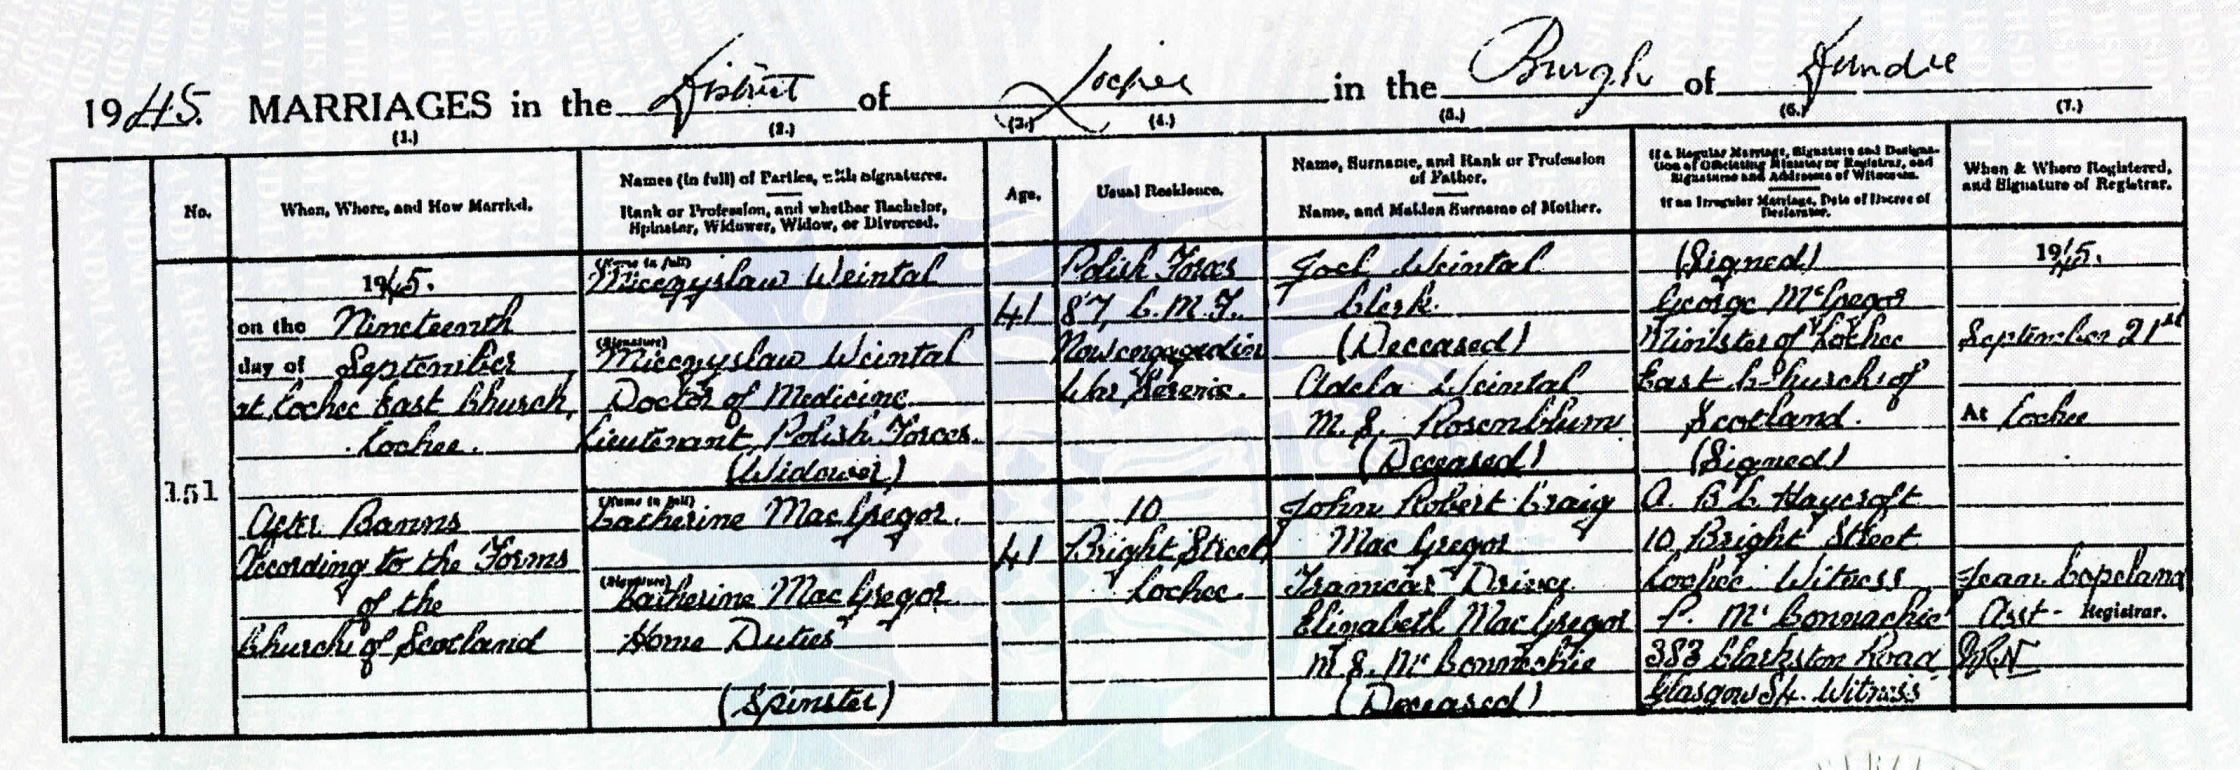 1945. MARRIAGES in the District of Lochee in the Burgh of Dundee
(1.) (2.) (3.) (4.) (5.) (6.) (7.)
No.
When, Where, and How Married.
Names (in full) of Parties, with Signatures.
Rank or Profession, and whether Bachelor,
Spinster, Widower, Widow, or Divorced.
Age.
Usual Residence.
Name, Surname, and Rank or Profession
of Father.
Name, and Maiden Surname of Mother.
If a Regular Marriage, Signature and Designa-
tion of Officiating Minister or Registrar, and
Signatures and Addresses of Witnesses.
If an Irregular Marriage, Date of Decree of
Declarator.
When & Where Registered,
and Signature of Registrar.
151
1945.
on the Nineteenth
day of September
at Lochee East Church,
Lochee.
After Banns
According to the Forms
of the
Church of Scotland
(Name in full)
Mieczyslaw Weintal
(Signature)
Mieczyslaw Weintal
Doctor of Medicine
Lieutenant Polish Forces.
(Widower)
(Name in full)
Catherine MacGregor.
(Signature)
Catherine MacGregor
Home Duties
(Spinster)
41
41
Polish Forces
Now engaged in
War Service.
10
Bright Street
Lochee.
Joel Weintal
Clerk.
(Deceased)
Adela Weintal
M.S. Rosenblum
(Deceased)
John Robert Craig
MacGregor
Tramcar Driver
Elizabeth MacGregor
M.S. McConnachie
(Deceased)
(Signed)
George McGregor
Minister of Lochee
East Church of
Scotland.
(Signed)
A. B. L. Haycroft
10 Bright Street
Lochee Witness
P. McConnachie
383 Clarkston Road
Glasgow S4. Witness
1945.
September 21st
At Lochee
Jean Copeland
Asst- Registrar.